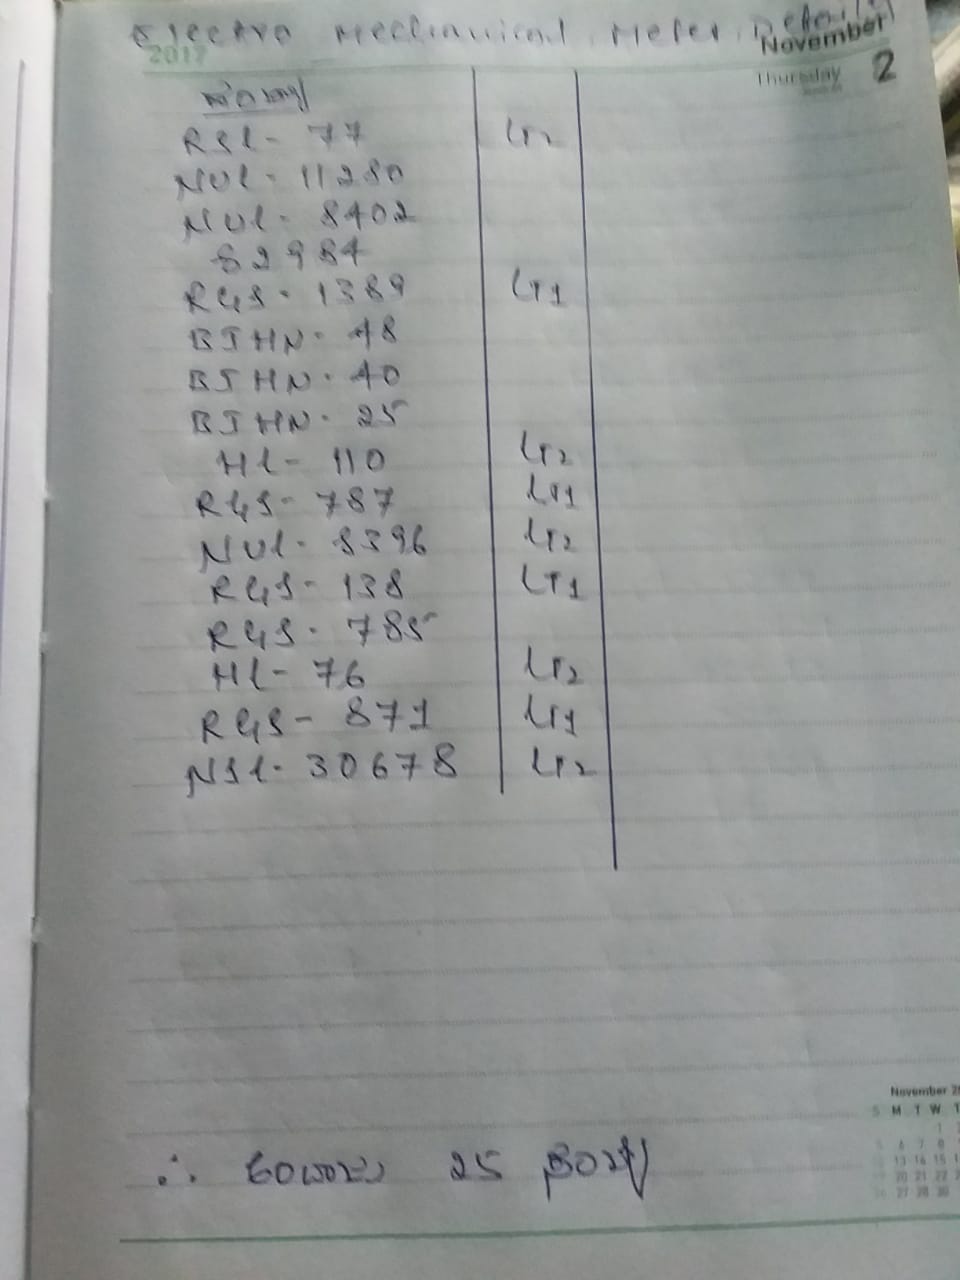 Electro Mechanical Meter Details
2017
November
Thursday 2
RSL - 77 LT2
NVL - 11280
NVL - 8402
82984
RGS - 1389 LT1
BJHN - 48
BJHN - 40
BJHN - 25
HL - 110 LT2
RGS - 787 LT1
NVL - 8396 LT2
RGS - 138 LT1
RGS - 785
HL - 76 LT2
RGS - 871 LT1
NSL - 30678 LT2
November
S M T W T
∴ 25